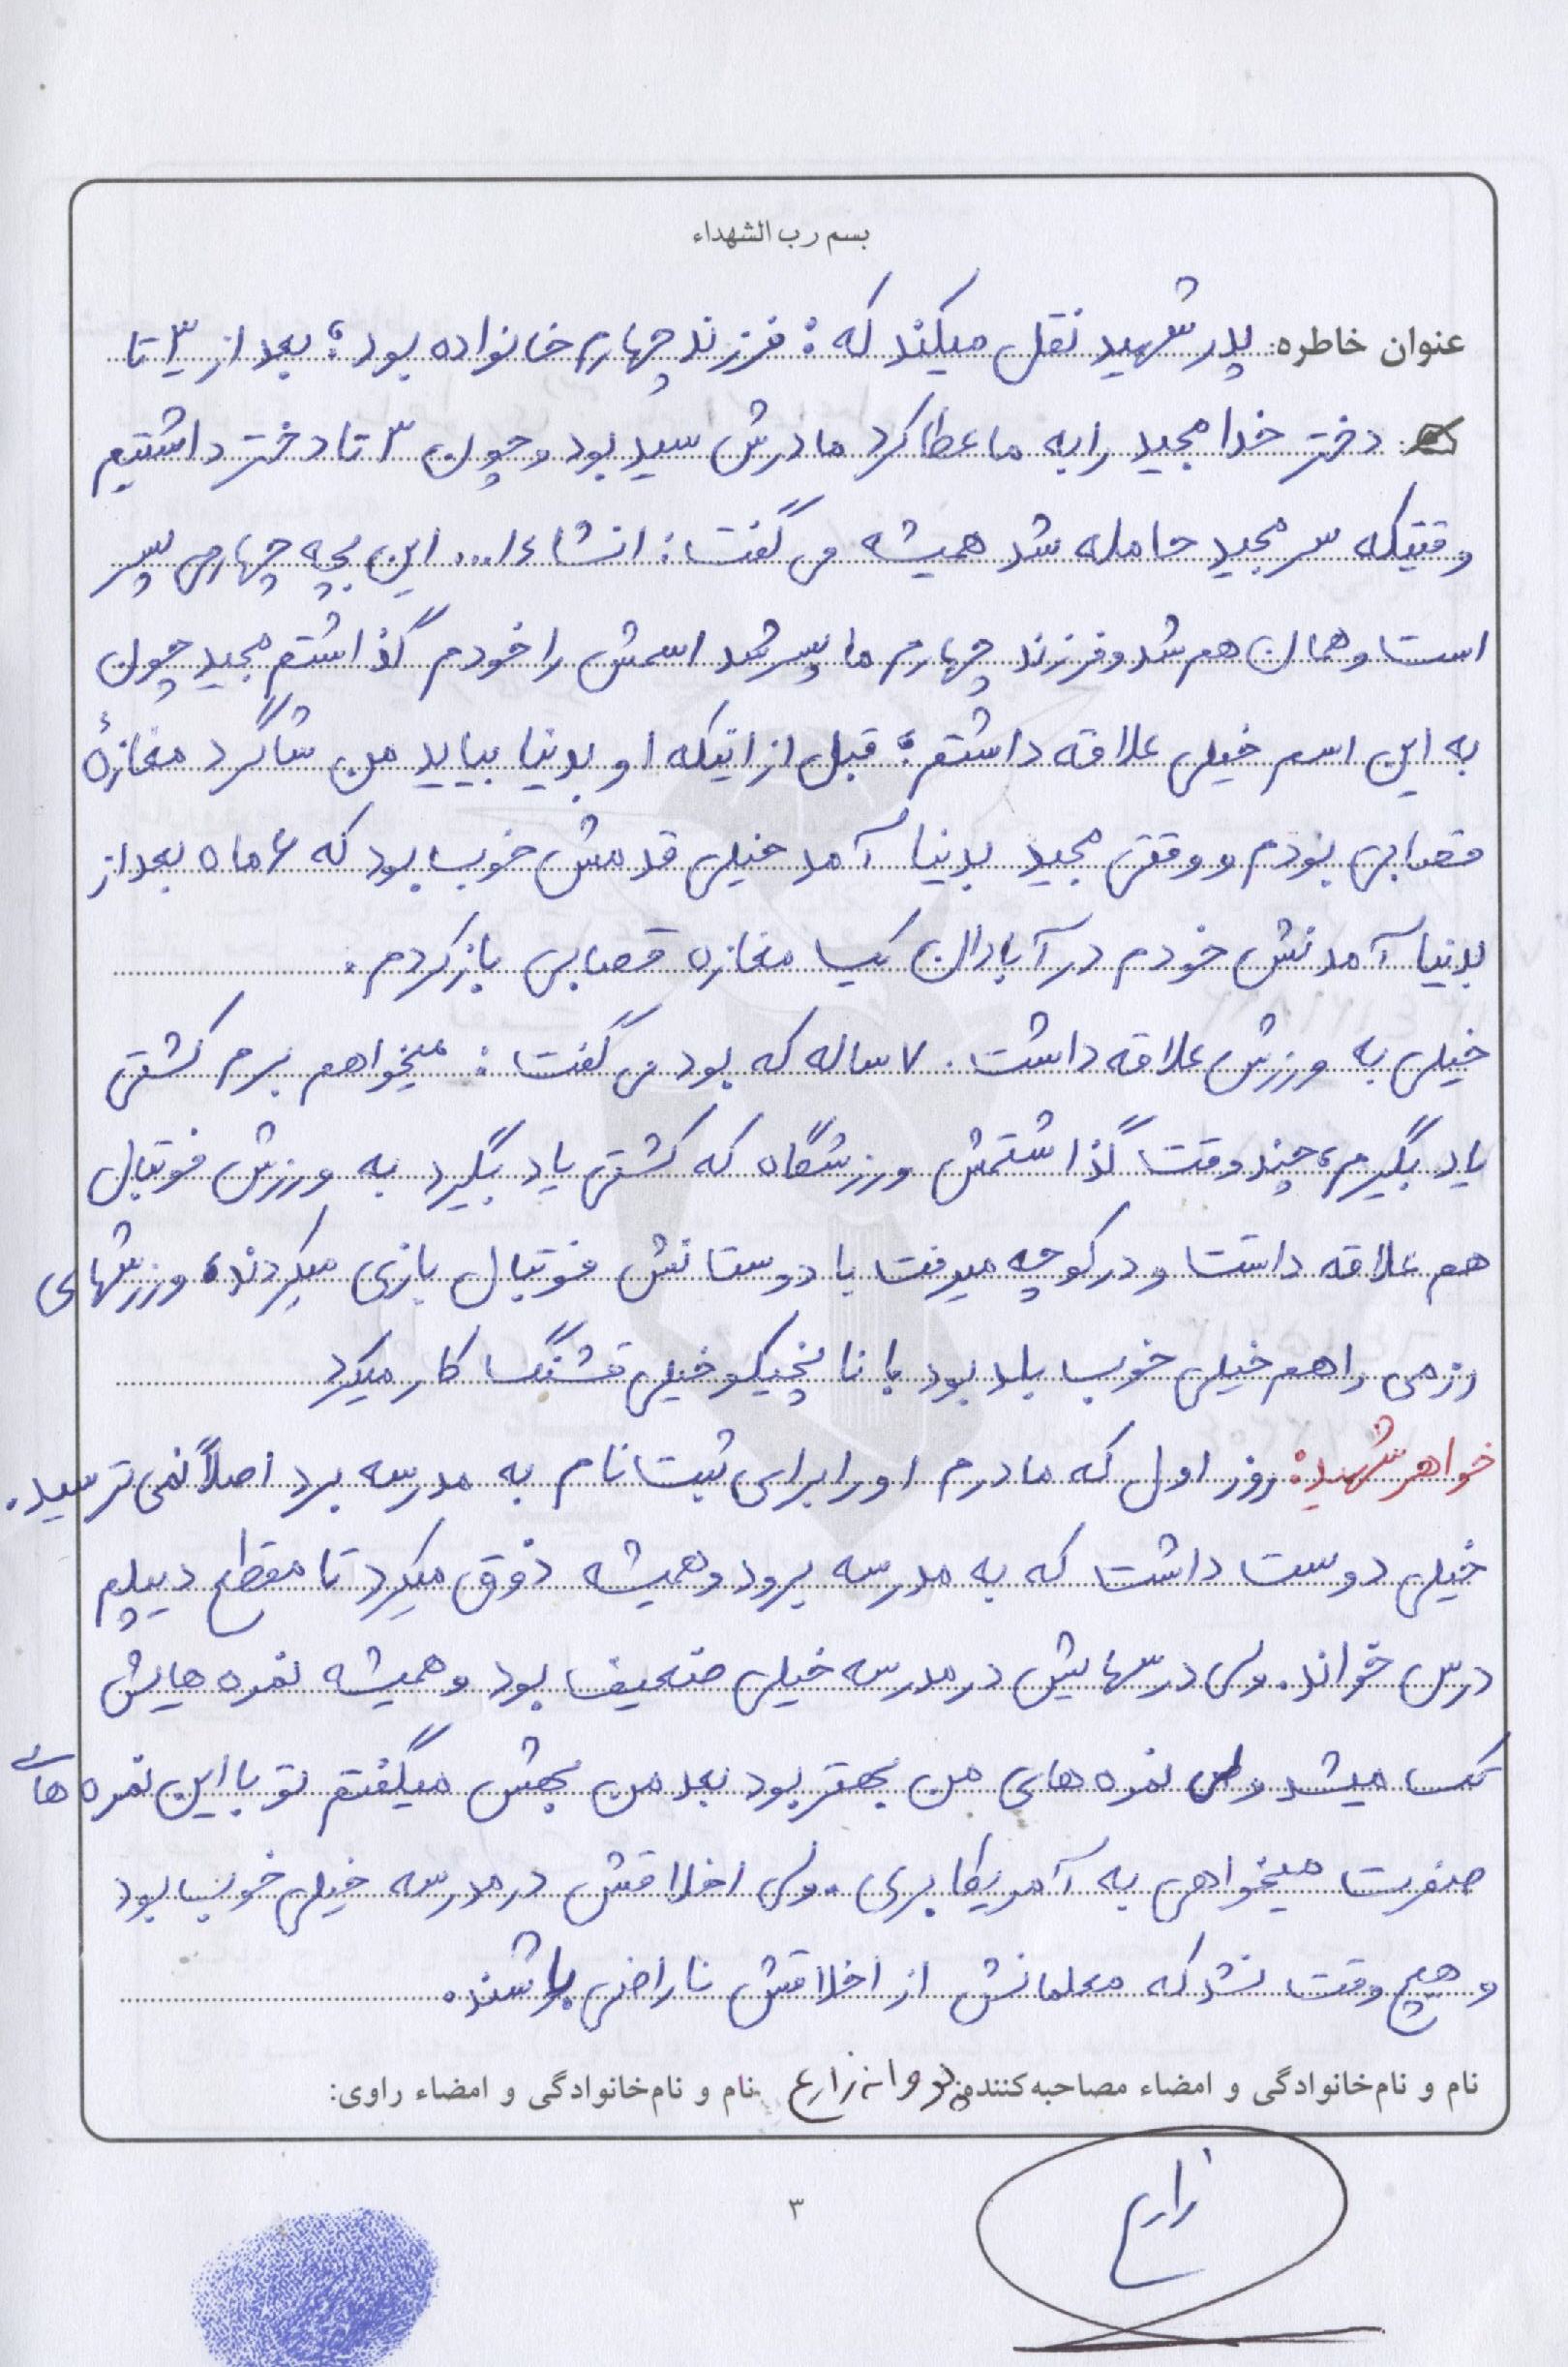 بسم رب الشهداء
عنوان خاطره: پدر شهید نقل میکند که: فرزند چهارم خانواده بود؛ بعد از ۳ تا
دختر خدا مجید را به ما عطا کرد مادرش سید بود و چون ۳ تا دختر داشتیم
وقتیکه سر مجید حامله شد همیشه می گفت: انشاءا... این بچه چهارمی پسر
است و همان هم شد و فرزند چهارم ما پسر شد اسمش را خودم گذاشتم مجید چون
به این اسم خیلی علاقه داشتم؛ قبل از اینکه او بدنیا بیاید من شاگرد مغازهٔ
قصابی بودم و وقتی مجید بدنیا آمد خیلی قدمش خوب بود که ۶ ماه بعد از
بدنیا آمدنش خودم در آبادان یک مغازه قصابی باز کردم.
خیلی به ورزش علاقه داشت. ۷ ساله که بود می گفت: میخواهم برم کشتی
یاد بگیرم، چند وقت گذاشتمش ورزشگاه که کشتی یاد بگیرد به ورزش فوتبال
هم علاقه داشت و در کوچه میرفت با دوستانش فوتبال بازی میکردند، ورزشهای
رزمی را هم خیلی خوب بلد بود با نانچیکو خیلی قشنگ کار میکرد
خواهر شهید: روز اول که مادرم او را برای ثبت نام به مدرسه برد اصلاً نمی ترسید.
خیلی دوست داشت که به مدرسه برود و همیشه ذوق میکرد تا مقطع دیپلم
درس خواند. ولی درسهایش در مدرسه خیلی ضعیف بود و همیشه نمره هایش
تک میشد ولی نمره های من بهتر بود بعد من بهش میگفتم تو با این نمره های
صفرت میخواهی به آمریکا بری. ولی اخلاقش در مدرسه خیلی خوب بود
و هیچ وقت نشد که معلمانش از اخلاقش ناراضی باشند.
نام و نام خانوادگی و امضاء مصاحبه کننده: پروانه زارع نام و نام خانوادگی و امضاء راوی:
زارع
۳